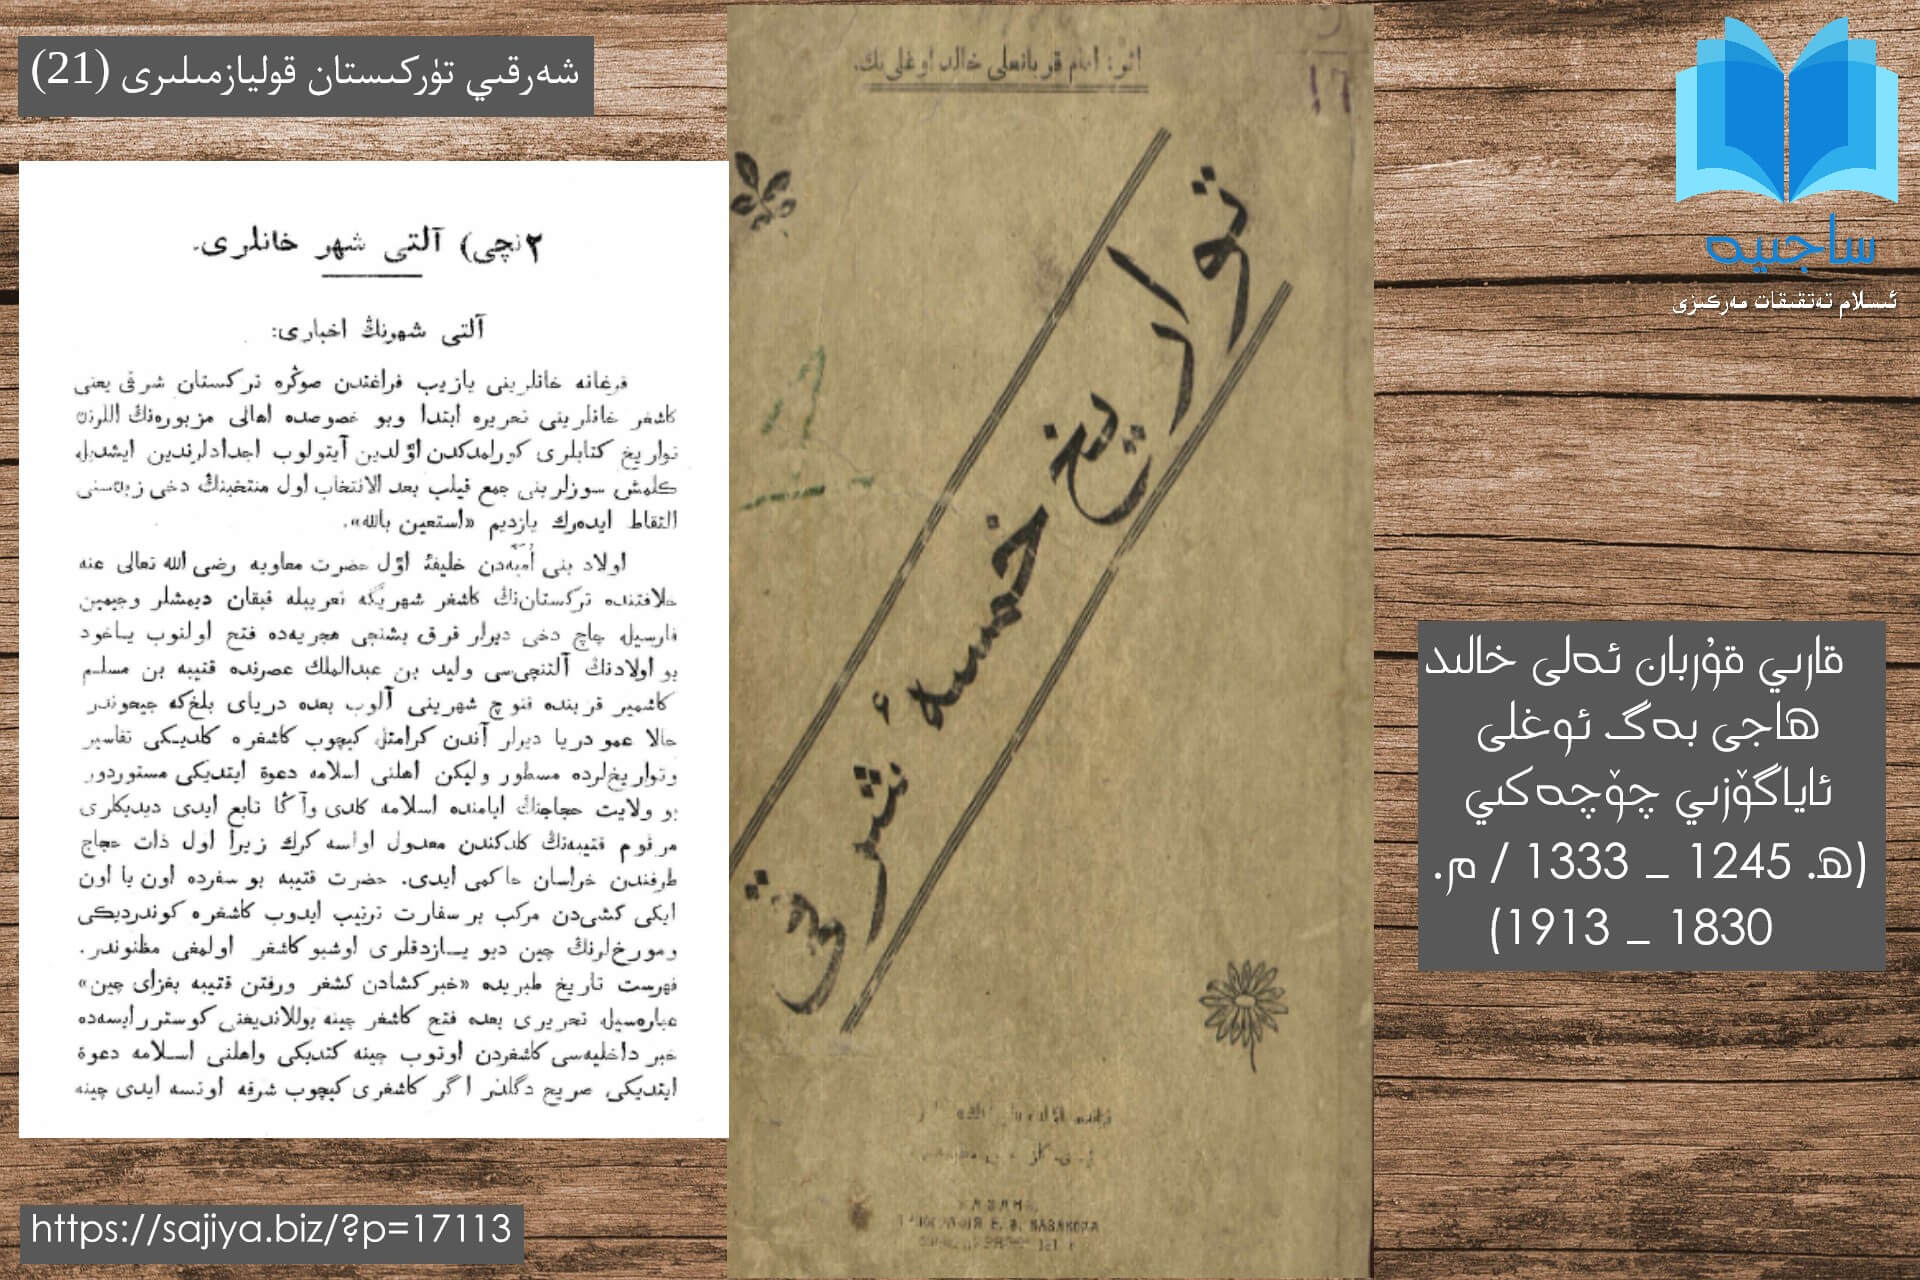 شەرقىي تۈركىستان قوليازمىلىرى (21)
۲نچی) آلتی شهر خانلری۔
آلتی شهرنڭ اخباری:
فرغانه خانلرینی یازیب فراغتدن صوڭره ترکستان شرقی یعنی
کاشغر خانلرینی تحریره ابتدا وبو خصوصده اهالی مزبوره‌نڭ اللرنده
تواریخ کتابلری کورلمدکدن اوّلدین آیتولوب اجدادلرندین ایشدیلو
کلمش سوزلرینی جمع قیلب بعد الانتخاب اول منتخبنڭ دخی زبده‌سنی
التقاط ایده‌رك یازدیم «استعین بالله».
اولاد بنی اُمیّه‌دن خلیفۀ اوّل حضرت معاویه رضی الله تعالی عنه
خلافتنده ترکستان‌نڭ کاشغر شهریگه تعریبله قیقان دیمشلر وجیمین
فارسیله چاچ دخی دیرلر قرق بشنجی هجریه‌ده فتح اولنوب یاخود
بو اولادنڭ آلتنچی‌سی ولید بن عبدالملك عصرنده قتیبه بن مسلم
کاشمیر قربنده قنوج شهرینی آلوب بعده دریای بلخ‌که جیحوندر
حالا عمو دریا دیرلر آندن کرامتله کیچوب کاشغره کلدیکی تفاسیر
وتواریخ‌لرده مسطور ولیکن اهلنی اسلامه دعوة ایتدیکی مستوردور
بو ولایت حجاجنڭ ایامنده اسلامه کلدی وآڭا تابع ایدی دیدیکلری
مرقوم قتیبه‌نڭ کلدکندن معدول اولسه کرك زیرا اول ذات حجاج
طرفندن خراسان حاکمی ایدی. حضرت قتیبه بو سفرده اون یا اون
ایکی کشی‌دن مرکب بر سفارت ترتیب ایدوب کاشغره کوندردیکی
ومورخ‌لرنڭ چین دیو یـازدقلری اوشبو کاشغر اولمغی مظنوندر.
فهرست تاریخ طبریده «خبر کشادن کشغر ورفتن قتیبه بغزای چین»
عباره‌سیله تحریری بعده فتح کاشغر چینه یوللاندیغنی کوسترر ایسه‌ده
خبر داخلیه‌سی کاشغردن اوتوب چینه کتدیکی واهلنی اسلامه دعوة
ایتدیکی صریح دگلدر اگر کاشغری کیچوب شرقه اوتسه ایدی چینه
اثر: امام قربانعلی خالد اوغلی‌نڭ.
تواریخ خمسهٔ شرقی
ساجىيە
ئىسلام تەتقىقات مەركىزى
قارىي قۇربان ئەلى خالىد
ھاجى بەگ ئوغلى
ئاياگۆزىي چۆچەكىي
(ھ. 1245 _ 1333 / م.
1830 _ 1913)
https://sajiya.biz/?p=17113